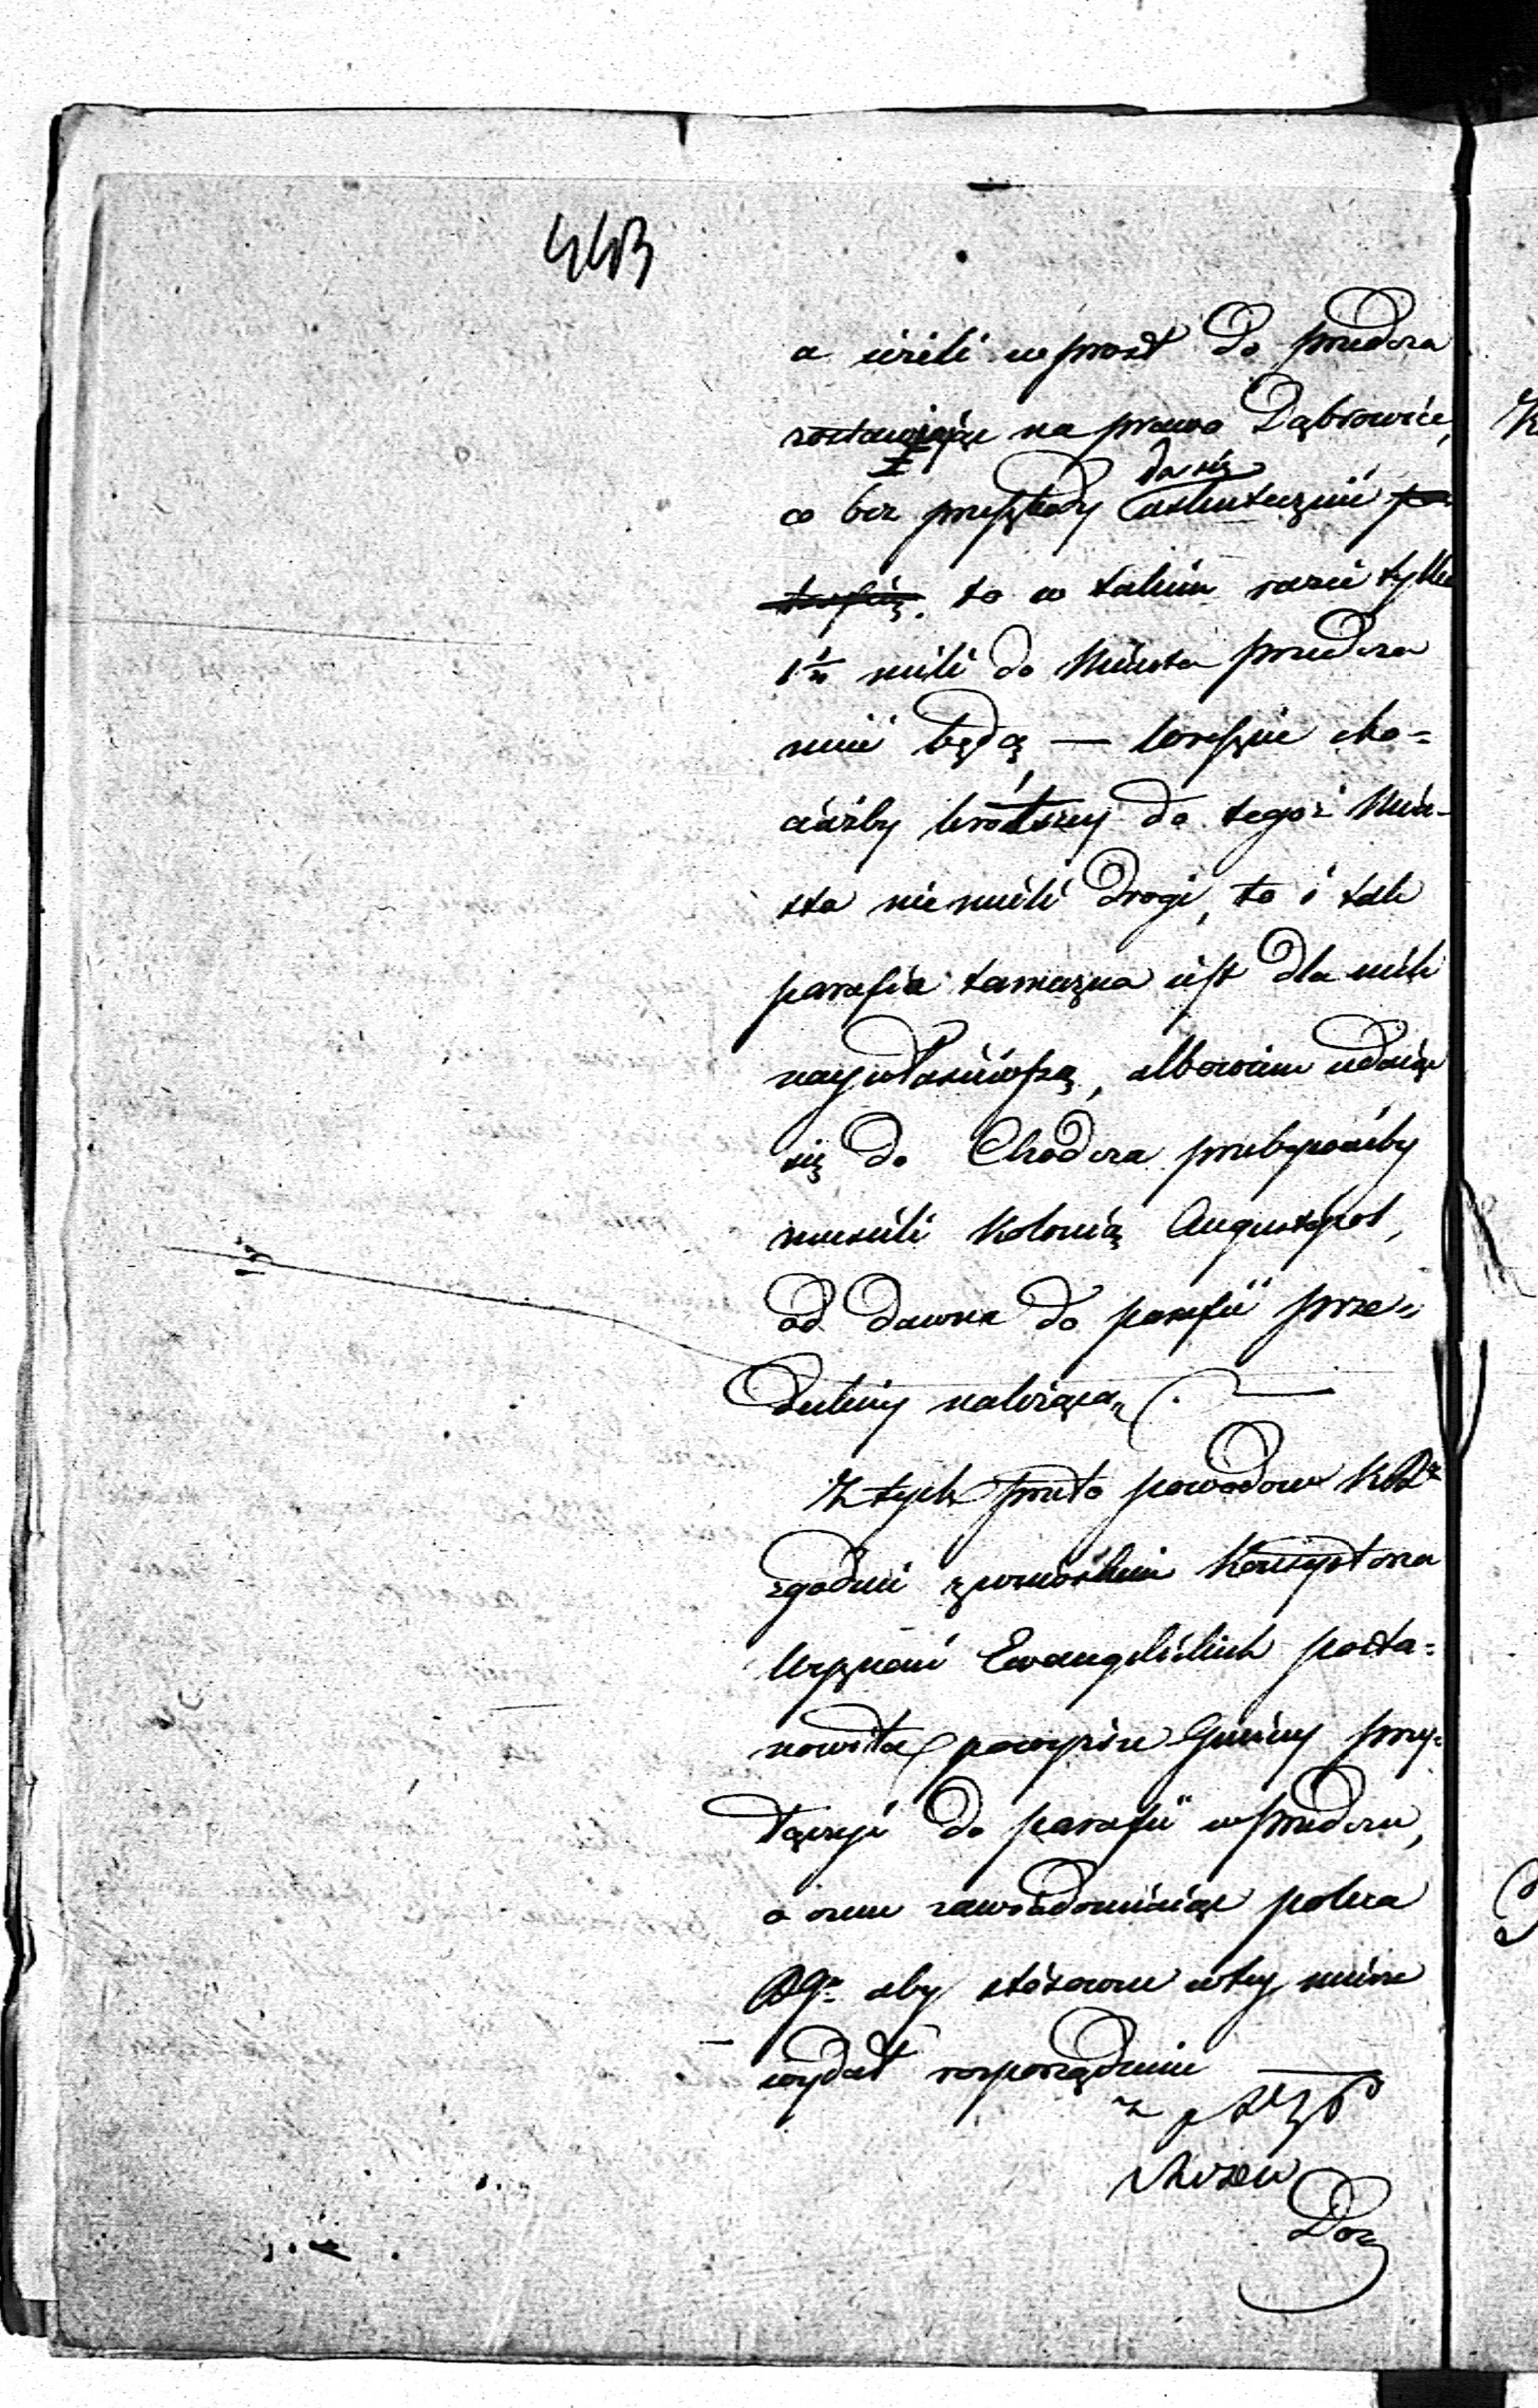 443
a ieżeli wprost do przedcza
zostawiając na prawo Dąbrowice,
co bez przeszkody da się uskutecznić
to w takim razie tylko
1 1/2 mili do Miasta przedcza
mieć będą — wreszcie cho=
ciażby krótszey do tegoż Mia-
sta nie mieli drogi, to i tak
parafia tameczna iest dla nich
naywłaściwszą, albowiem udaiąc
się do Chodcza przebywaćby
musieli Kolonią Augustopol,
od dawna do parafii prze=
deckiey należącą.
Z tych przeto powodow KRz
zgodnie z wnioskiem Konsystorza
Wyznań Ewangelickich posta=
nowiła powyższe Gminy przy=
łączyć do parafii w przedczu,
o czem zawiadamiaiąc poleca
aby stósowne w tey mierze
wydał rozporządzenie